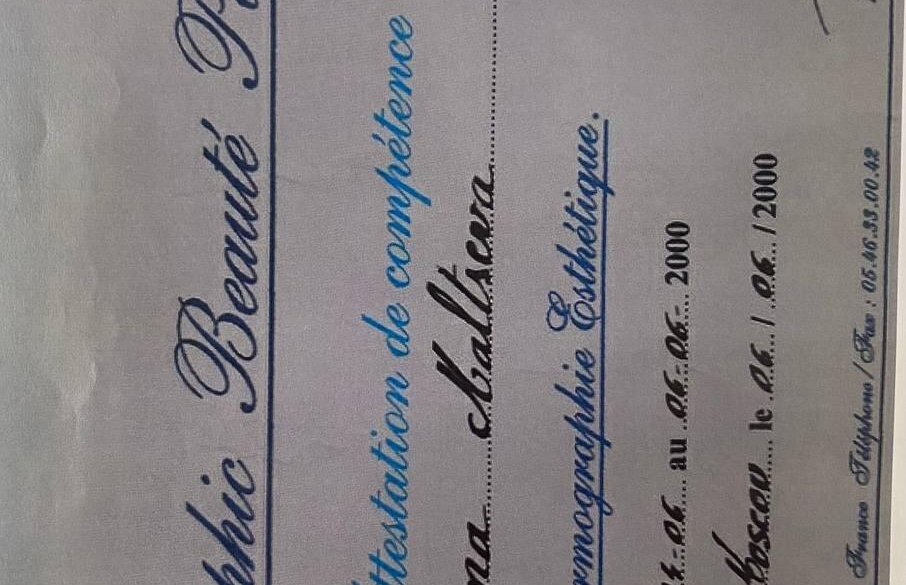 phic Beauté
ttestation de compétence
na Maltseva
rmographie Esthétique.
-06 au 06-06- 2000
Moscou le 06 / 06 / 2000
France Téléphone / Fax : 05.46.33.00.42